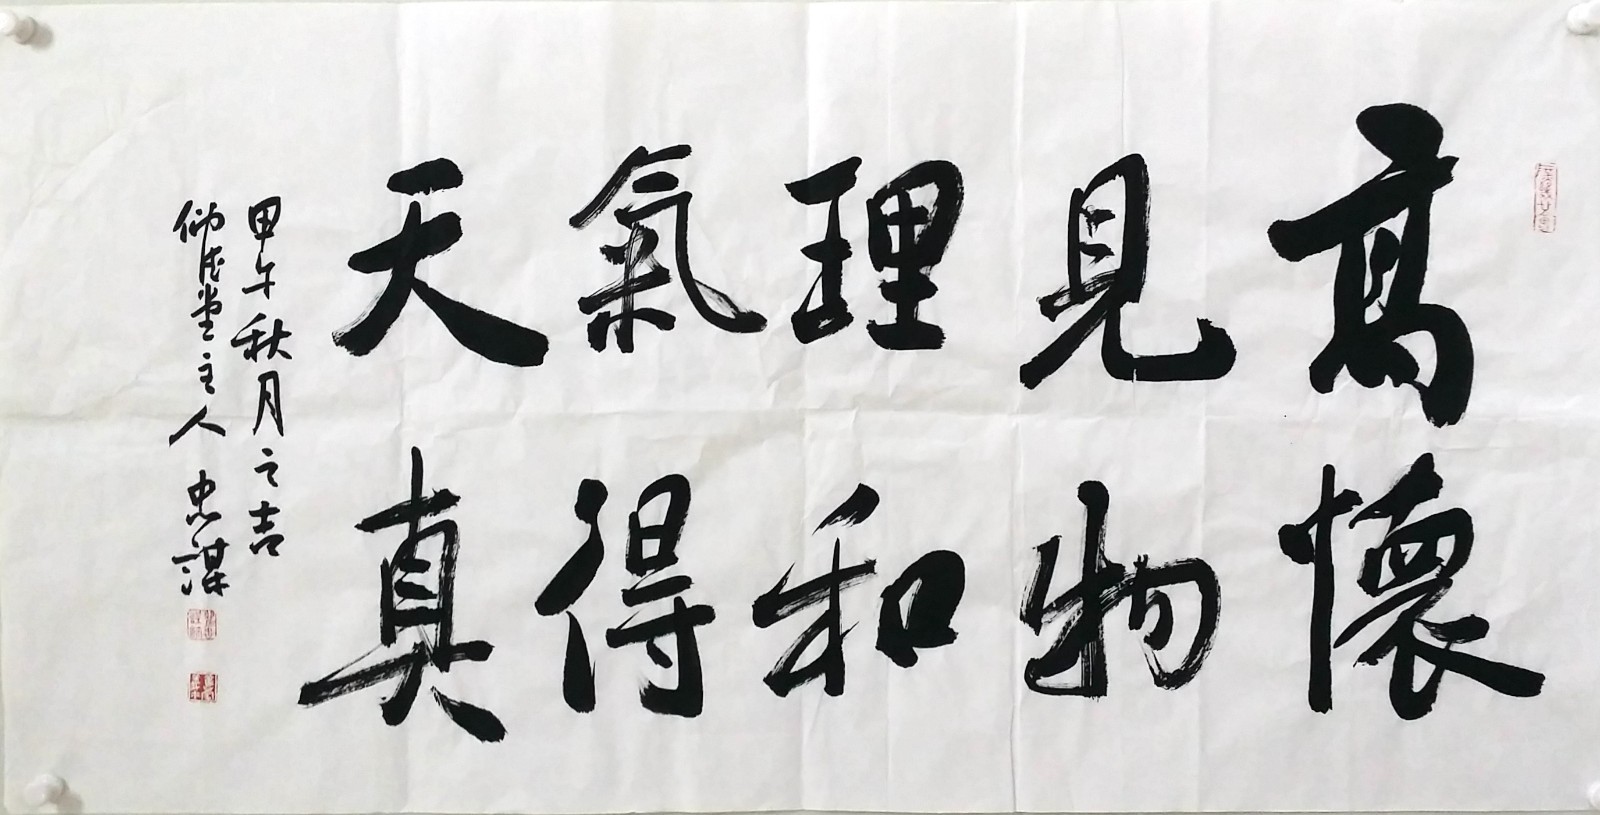 高懷
見物
理和
氣得
天真
甲午秋月之吉
仰浩堂主人 忠謀